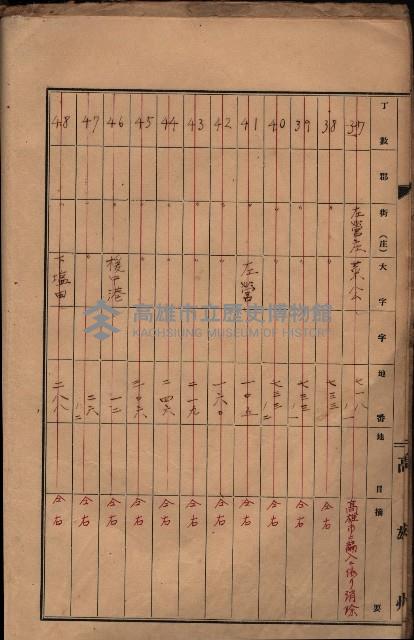 丁数 郡 街(庄) 大字 字 地番 地目 摘要
37 左營庄 菜公 七一八ノ一 高雄市ニ編入ニ依リ消除
38 〃 〃 七三三 仝右
39 〃 〃 七三三ノ一 仝右
40 〃 〃 七三三ノ二 仝右
41 〃 左營 一〇五 仝右
42 〃 〃 一六〇 仝右
43 〃 〃 二一九 仝右
44 〃 〃 二四六 仝右
45 〃 〃 三〇六 仝右
46 〃 桃子港 一三 仝右
47 〃 〃 二六ノ二 仝右
48 〃 下塩田 二八八 仝右
高雄州
高雄市立歷史博物館
KAOHSIUNG MUSEUM OF HISTORY